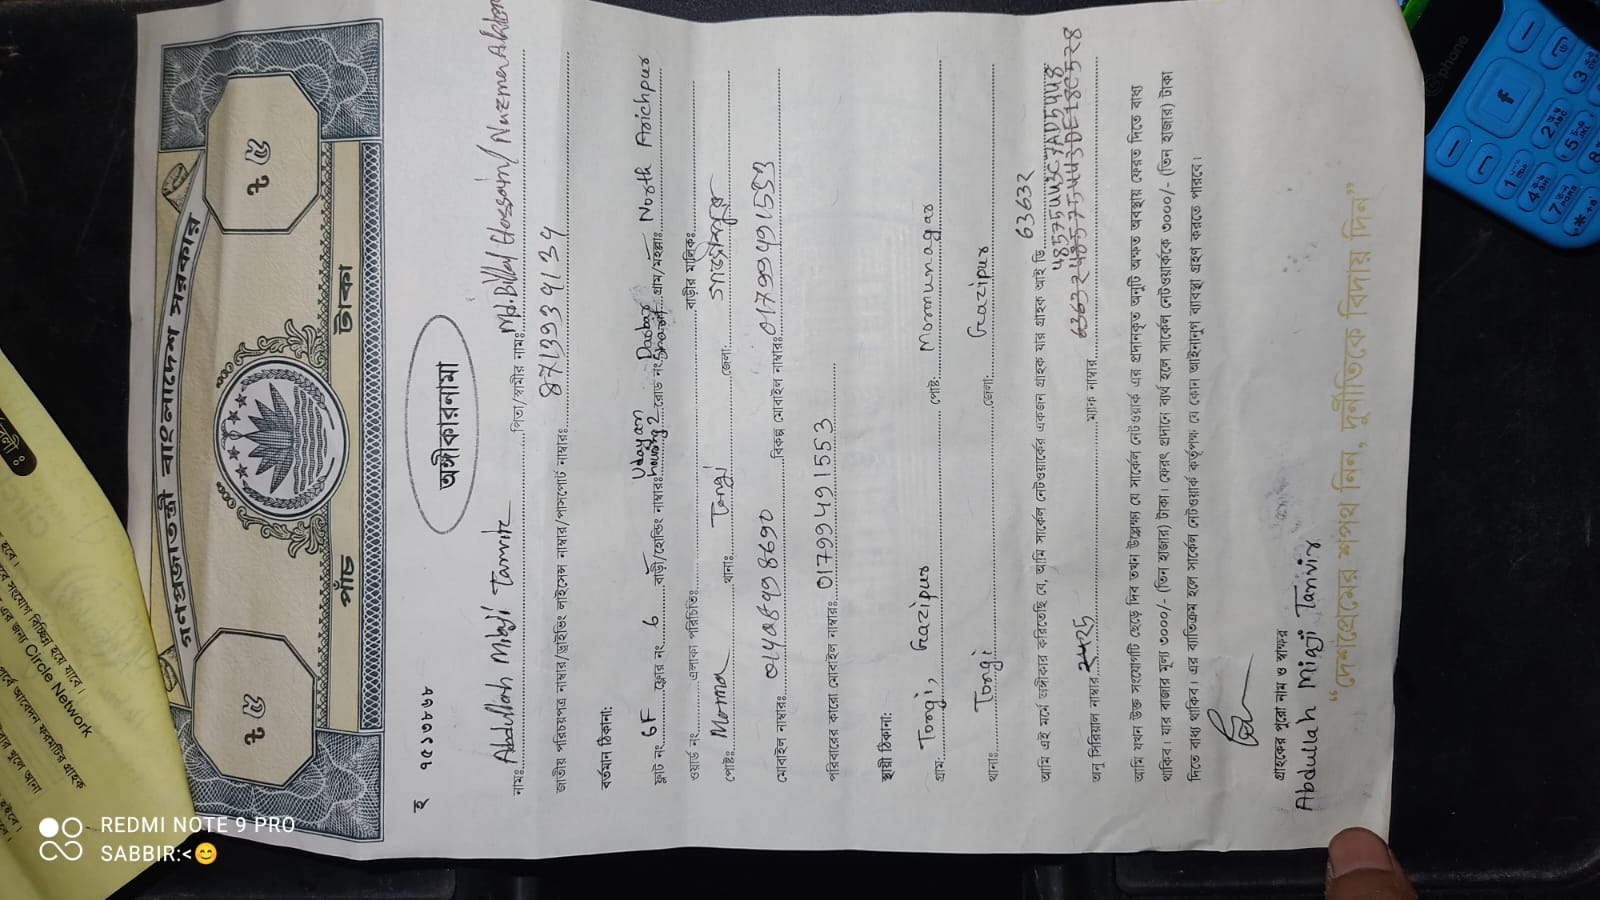 গণপ্রজাতন্ত্রী বাংলাদেশ সরকার
৳ ৫ ৳ ৫
পাঁচ টাকা
হ ৭৫১৩৮৬৮
অঙ্গীকারনামা
নামঃ Abdullah Miaji Tanvir পিতা/স্বামীর নামঃ Md. Billal Hossain/ Nazma Akter
জাতীয় পরিচয়পত্র নাম্বার/ড্রাইভিং লাইসেন্স নাম্বার/পাসপোর্ট নাম্বারঃ
বর্তমান ঠিকানা:
ফ্লাট নং 6F ফ্লোর নং 6 বাড়ী/হোল্ডিং নাম্বারঃ Udayan housing 2 রোড নং Darbar Sharif গ্রাম/মহল্লাঃ North Arichpur
ওয়ার্ড নং এলাকা পরিচিতিঃ বাড়ীর মালিক:
পোষ্টঃ থানাঃ Tongi জেলা: গাজীপুর
মোবাইল নাম্বারঃ বিকল্প মোবাইল নাম্বার: 01799491553
পরিবারের কারো মোবাইল নাম্বারঃ 01799491553
স্থায়ী ঠিকানা:
গ্রাম: Tongi, Gazipur পোষ্ট: Monnunagar
থানাঃ Tongi জেলা: Gazipur
আমি এই মর্মে অঙ্গীকার করিতেছি যে, আমি সার্কেল নেটওয়ার্কের একজন গ্রাহক যার গ্রাহক আই ডি 63632
অনু সিরিয়াল নাম্বার ম্যাক নাম্বার
আমি যখন উক্ত সংযোগটি ছেড়ে দিব তখন উল্লেক্ষ্য যে সার্কেল নেটওয়ার্ক এর প্রদানকৃত অনুটি অক্ষত অবস্থায় ফেরত দিতে বাধ্য
থাকিব। যার বাজার মূল্য ৩০০০/- (তিন হাজার) টাকা। ফেরৎ প্রদানে ব্যর্থ হলে সার্কেল নেটওয়ার্ককে ৩০০০/- (তিন হাজার) টাকা
দিতে বাধ্য থাকিব। এর ব্যতিক্রম হলে সার্কেল নেটওয়ার্ক কর্তৃপক্ষ যে কোন আইনানুগ ব্যাবস্থা গ্রহণ করতে পারবে।
গ্রাহকের পুরো নাম ও স্বাক্ষর
Abdullah Miaji Tanvir
“দেশপ্রেমের শপথ নিন, দুর্নীতিকে বিদায় দিন”
সংযোগ বিচ্ছিন্ন হয়ে যাবে।
এর জন্য Circle Network
phone
REDMI NOTE 9 PRO
SABBIR:<😊